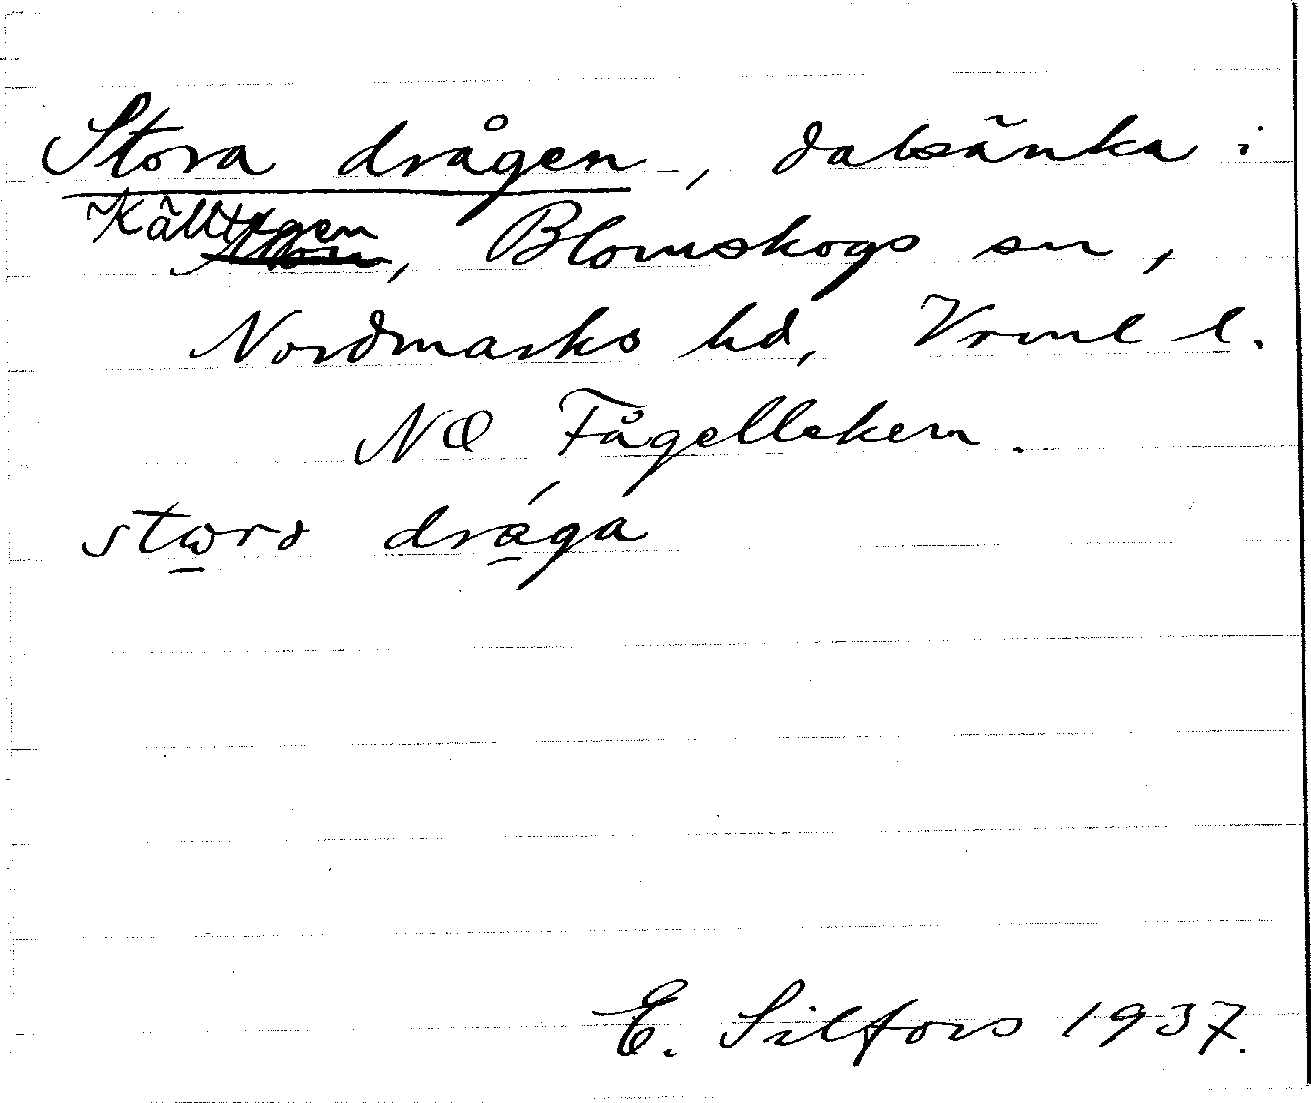 Stora drågen, dalsänka i
Källtegen, Blomskogs sn,
Nordmarks hd, Vrml l.
NO Fågelleken.
storo drága
E. Silfors 1937.